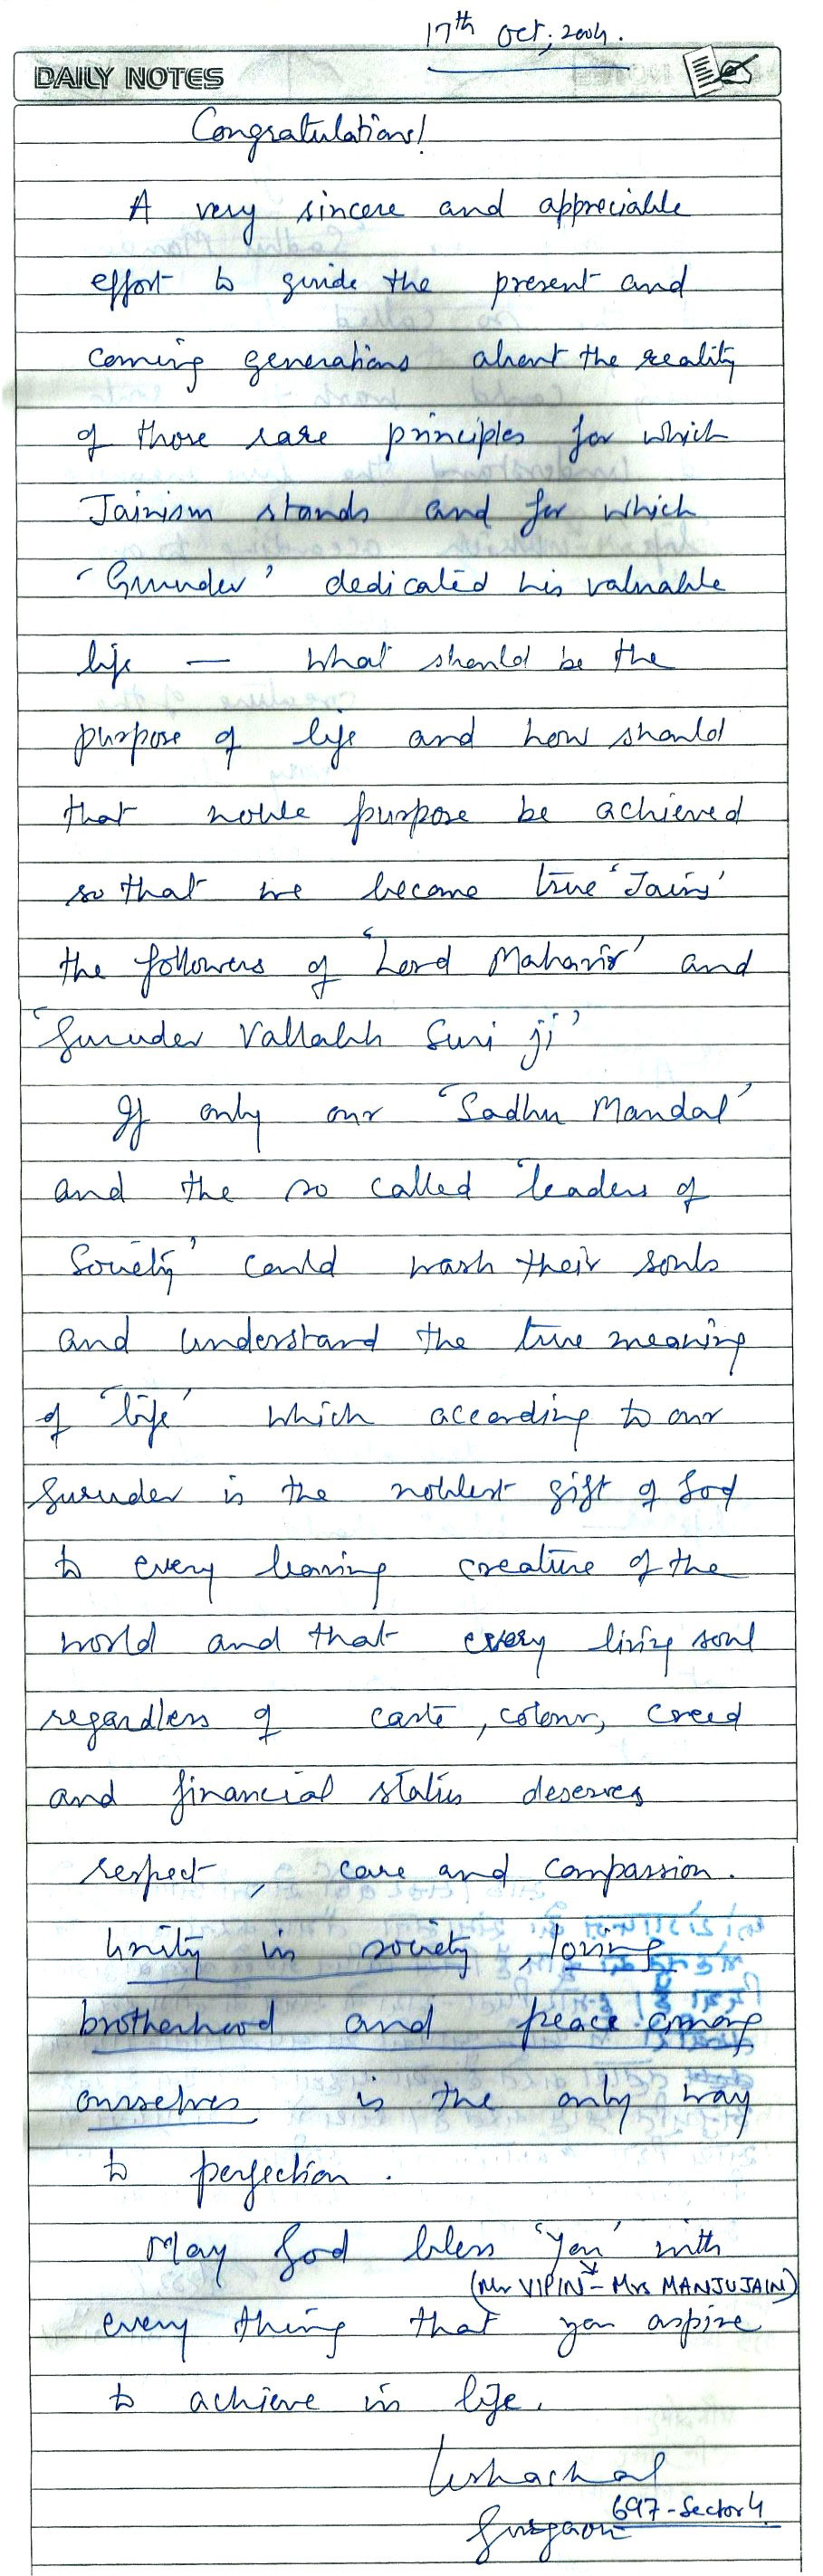 17th Oct, 2004.
DAILY NOTES
Congratulations!
A very sincere and appreciable
effort to guide the present and
coming generations about the reality
of those rare principles for which
Jainism stands and for which
'Guruder' dedicated his valuable
life — what should be the
purpose of life and how should
that noble purpose be achieved
so that we become true 'Jains'
the followers of 'Lord Mahavir' and
'Guruder Vallabh Suri ji'
If only our 'Sadhu Mandal'
and the so called 'leaders of
Society' could wash their souls
and understand the true meaning
of 'life' which according to our
Guruder is the noblest gift of God
to every leaving creature of the
world and that every living soul
regardless of caste, colour, creed
and financial status deserves
respect, care and compassion.
Unity in society, loving
brotherhood and peace among
ourselves is the only way
to perfection.
May God bless 'you' with
(Mr VIPIN - Mrs MANJU JAIN)
every thing that you aspire
to achieve in life.
697-Sector 4
Gurgaon